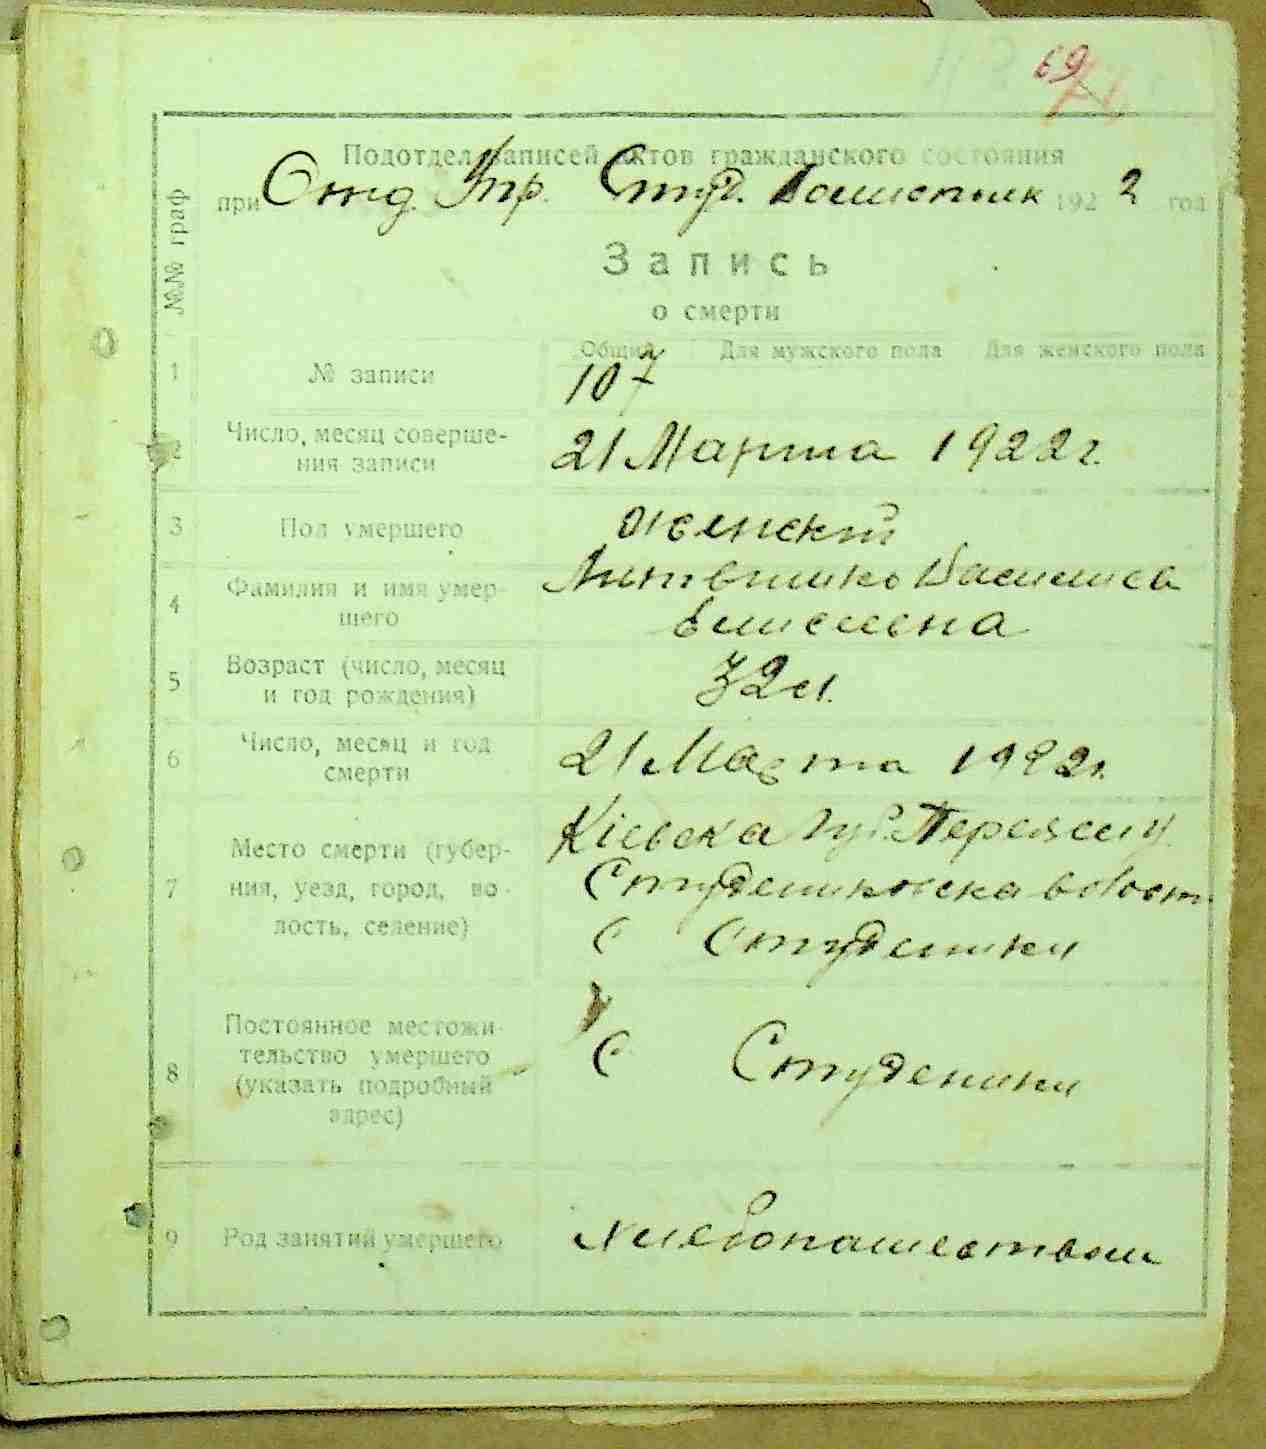 69
Подотдел записей актов гражданского состояния
при Отд. Упр. Студ. 1922 год
№№ граф
Запись
о смерти
Общий Для мужского пола Для женского пола
1 № записи 107
2 Число, месяц соверше-
ния записи
21 Марта 1922 г.
3 Пол умершего женский
4 Фамилия и имя умер-
шего
Литвинко Василиса
5 Возраст (число, месяц
и год рождения)
32 л.
6 Число, месяц и год
смерти
21 Марта 1922 г.
7 Место смерти (губер-
ния, уезд, город, во-
лость, селение)
Кіевска губ. Переяс у
Студениковска волост
С Студеники
8 Постоянное местожи-
тельство умершего
(указать подробный
адрес)
С Студеники
9 Род занятий умершего хлебопашеством